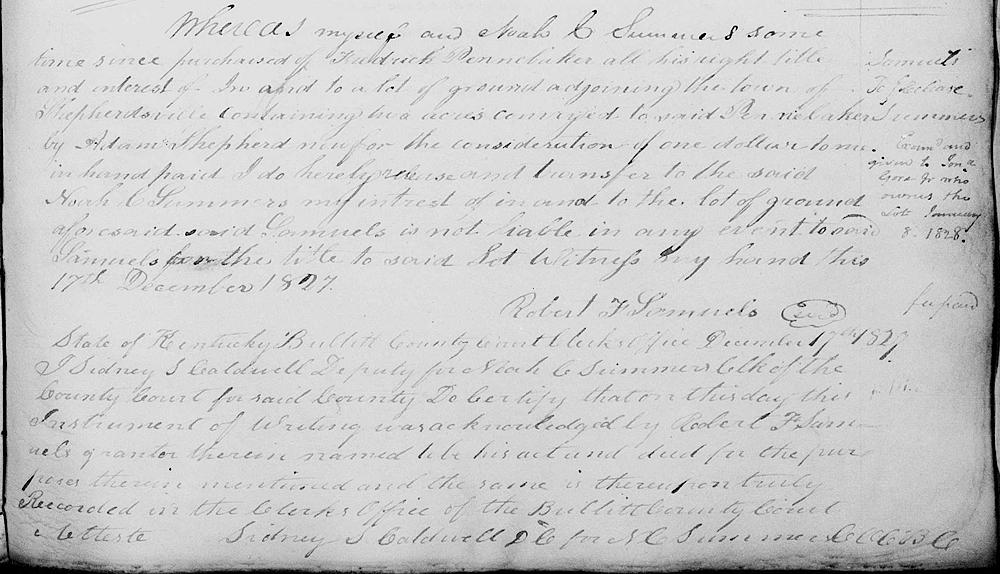 Whereas myself and Noah C Summers some
time since purchased of Fredrick Pennebaker all his right title
and interest of In and to a lot of ground adjoining the town of
Shepherdsville containing two acres conveyed to said Pennebaker
by Adam Shepherd now for the consideration of one dollar to me
in hand paid I do hereby release and transfer to the said
Noah C Summers my intrest of in and to the lot of ground
aforesaid said Samuels is not liable in any event to said
Samuels for the title to said Lot Witness my hand this
17th December 1827.
Robert F Samuels Seal
Samuels
To Release
Summers
Examd and
given to Jno
Gore Jr who
owns the
Lot January
8. 1828.
fee paid
State of Kentucky Bullitt County court Clerks Office December 17th 1827
I Sidney S Caldwell Deputy for Noah C Summers Clk of the
County Court for said County Do Certify that on this day this
Instrument of Writing was acknowledged by Robert F Sam-
uels grantor therein named to be his act and deed for the pur
poses therein mentioned and the same is thereupon truly
Recorded in the Clerks Office of the Bullitt County Court
Atteste Sidney S Caldwell DC for N C Summers C C C B C